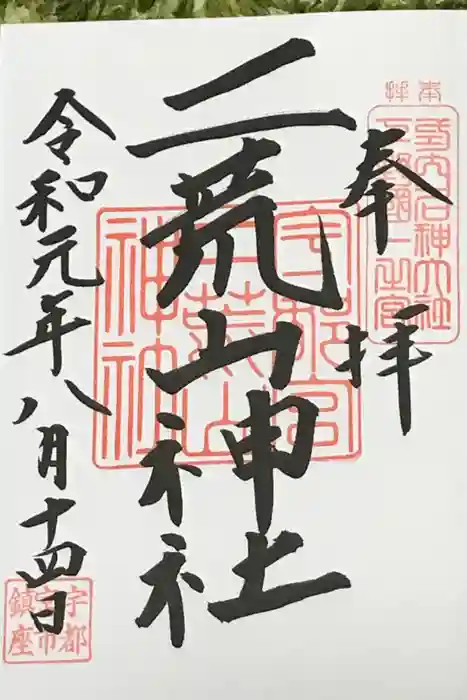 奉拝
奉拝
式内名神大社
下野國一之宮
二荒山神社
宇都宮
二荒山
神社
令和元年八月十四日
宇都
宮市
鎮座